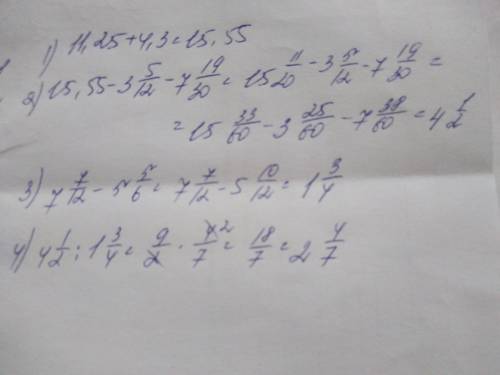 1) 11,25+4,3=15,55
2) 15,55-3 5/12-7 19/30=15 11/20-3 5/12-7 19/30=
=15 33/60-3 25/60-7 38/60=4 1/2
3) 7 7/12-5 5/6=7 7/12-5 10/12=1 3/4
4) 4 1/2:1 3/4=9/2·4²/7=18/7=2 4/7